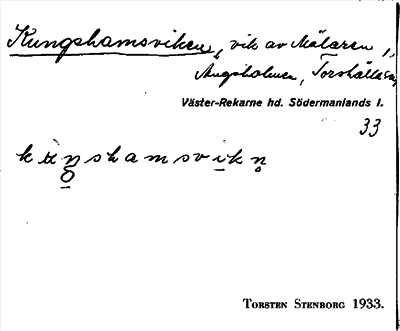 Kungshamsviken, vik av Mälaren,
Ängsholmen, Torshälla sn,
Väster-Rekarne hd. Södermanlands l.
33
kuŋshamsvikn̥
TORSTEN STENBORG 1933.